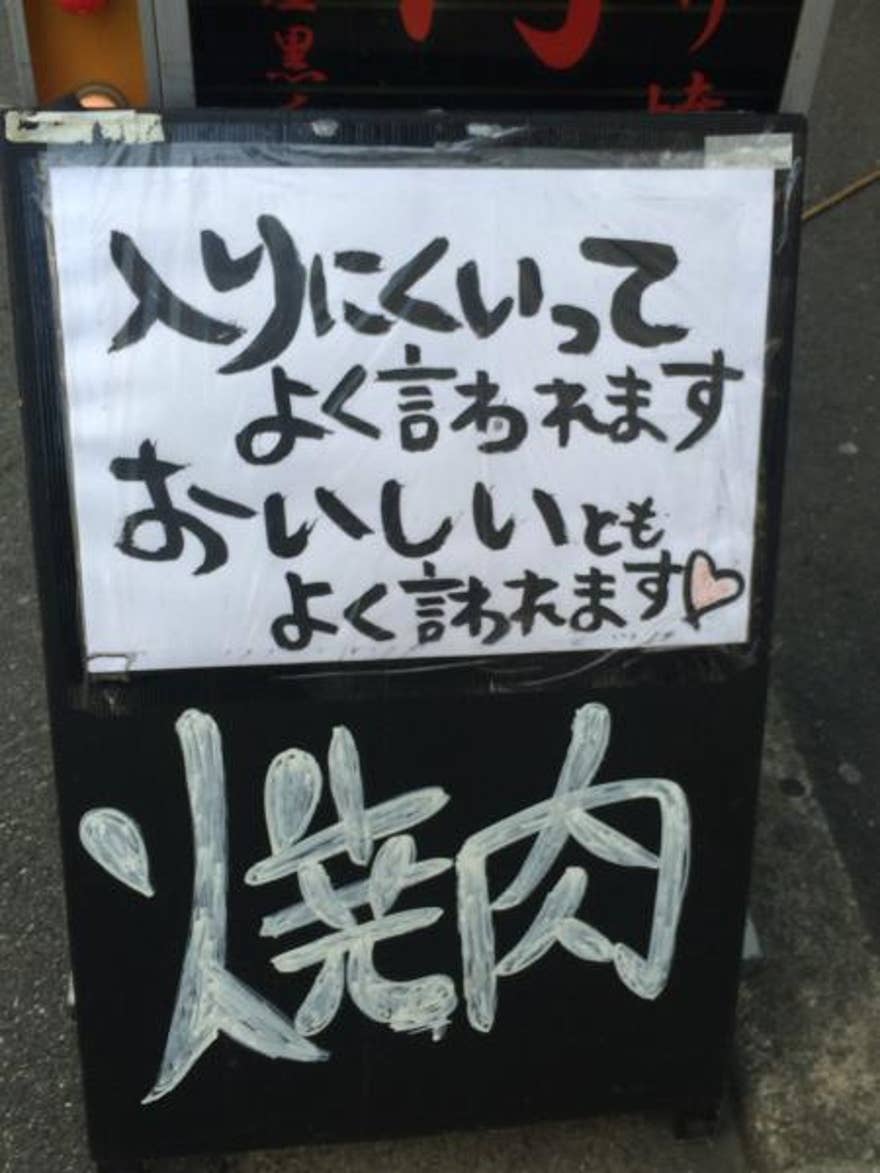 黒
入りにくいって
よく言われます
おいしいとも
よく言われます♡
焼肉